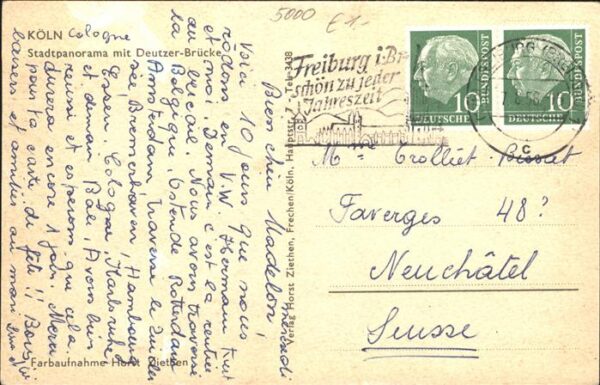 5000 € 1.-
KÖLN Cologne
Stadtpanorama mit Deutzer-Brücke
Freiburg i.Br.
schön zu jeder
Jahreszeit
10 DEUTSCHE BUNDESPOST
10 DEUTSCHE BUNDESPOST
c
Verlag Horst Ziethen, Frechen/Köln, Hauptstr. 7 Tel. 438
Mercredi
Bien chère Madelon!
Voià 10 jours que nous
rôdons en V.W. Hermann Kurt
et moi. Demain c'est la rentrée
au bercail. Nous avons traversé
la Belgique, Ostende Rotterdam
Amsterdam, traversé le Zuider
sée Bremerhaven, Hambourg
Essen, Cologne, Karlsruhe
et demain Bâle. Avons bien
et espérons que cela
durera encore 1 jour. Merci
pour ta carte de fête!! Bons
baisers et amitiés au mari
Mme Trolliet-
Faverges 48?
Neuchâtel
Suisse
Farbaufnahme Horst Ziethen